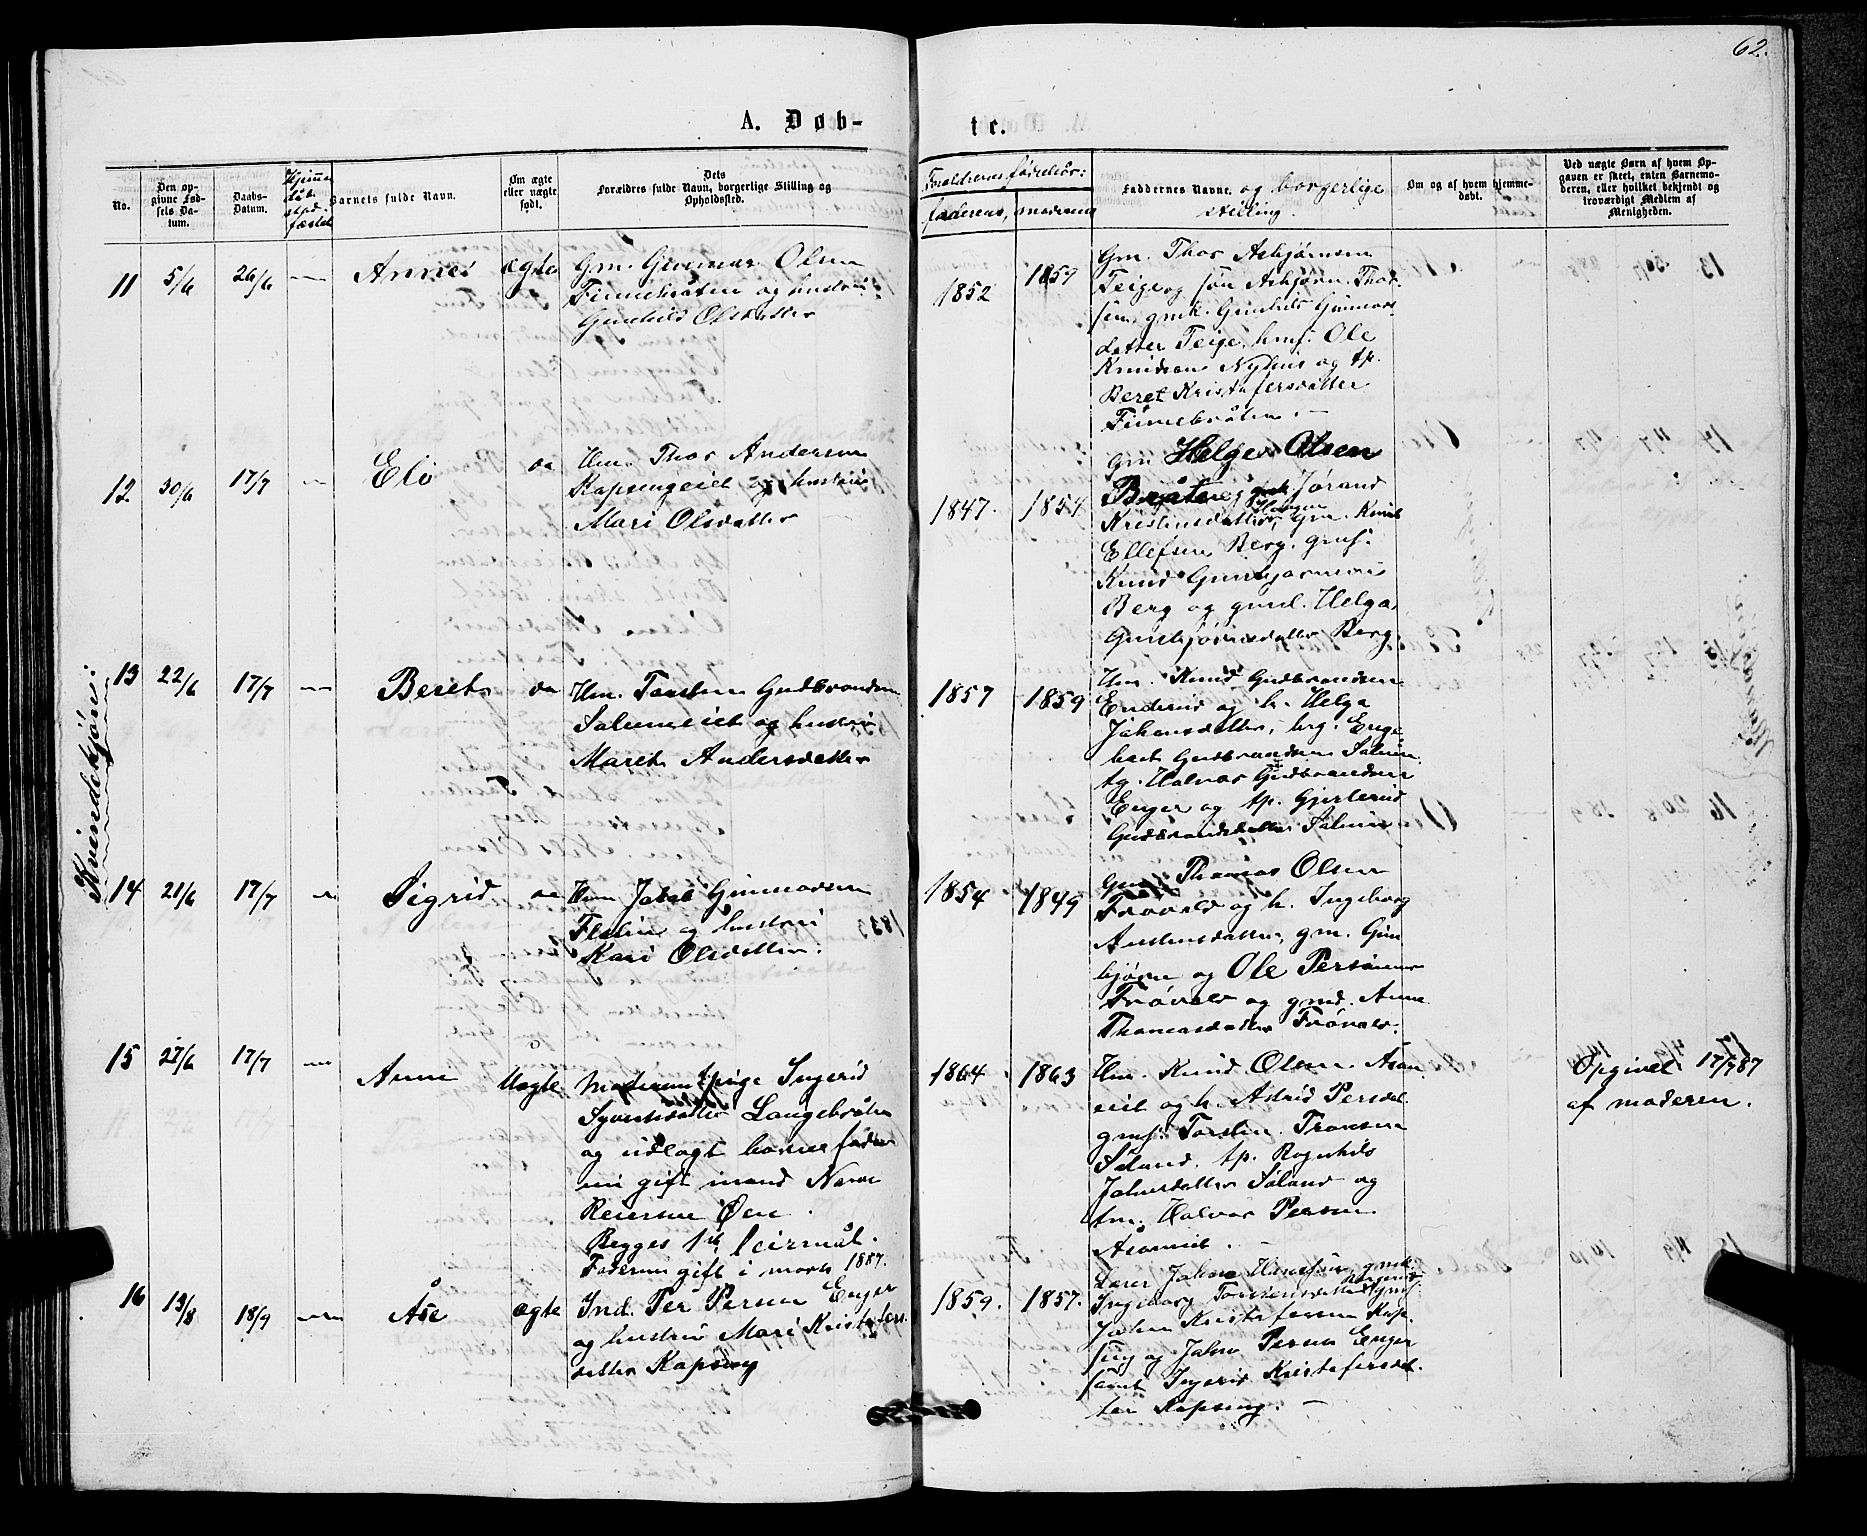 62.
A. Døb-
te.
No.
Den op-
givne Fød-
sels Da-
tum.
Daabs-
Datum.
Hjemme
døb.
stad-
fæstet
Barnets fulde Navn.
Om ægte
eller uægte
født.
Dets
Forældres fulde Navn, borgerlige Stilling og
Opholdssted.
Forældrenes fødselsår:
faderens, moderens
Faddernes Navne, og borgerlige
stilling.
Om og af hvem hjemme-
døbt.
Ved uægte Børn af hvem Op-
gaven er skeet, enten Barnemo-
deren, eller hvilket bekjendt og
troværdigt Medlem af
Menigheden.
Kvindekjøn:
11 5/6 26/6 — Anne ægte
Gm. Gunnar Olsen
Finnebråten og hustru
Gunhild Olsdatter
1852 1859
Gm. Thor Asbjørnsen
Teige og søn Asbjørn Thor-
sen, gmk. Gunhild Gunnars-
datter Teige, hmf. Ole
Knudsen Nyhus og tp.
Beret Kristofersdatter
Finnebråten. —
12 30/6 17/7 — Eli do
Hm. Thor Andersen
Kapsengeiet og hustru
Mari Olsdatter —
1847. 1854
gm Helge Olsen
Bråten, gmk Jørand
Haugen
Kristensdatter, gm. Knud
Ellefsen Berg, gmf.
Knud Gunbjørnsen
Berg og gmd. Helga
Gunbjørnsdatter Berg.
13 22/6 17/7 — Beret do
Hm. Torsten Gudbrandsen
Salumeiet og hustru
Marit Andersdatter
1857 1859
Hm. Knud Gudbrandsen
Enderud og h. Helga
Johansdatter, brg. Enge-
bret Gudbrandsen Salum
tg. Halvor Gudbrandsen
Enger og tp. Gjertrud
Gudbrandsdatter Salum
14 21/6 17/7 — Sigrid do
Hm Jakob Gunnarsen
Flaten og hustru
Kari Olsdatter.
1854 1849
Gm. Thomas Olsen
Frøvold og h. Ingeborg
Andersdatter, gm. Gun-
bjørn og Ole Persønner
Frøvold og gmd. Anne
Thomasdatter Frøvold.
15 27/6 17/7 — Anne Uægte
Moderen pige Ingerid
Syvertsdatter Langebråten
og udlagt barnefader
en gift mand
Reiersen Øen.
Begges 1ste leirmål.
Faderen gift i marts 1887.
1864 1863
Hm. Knud Olsen Ason-
eiet og h. Astrid Persdat.
gmf. Torsten Tronsen
Søland, tp. Ragnhild
Johnsdatter Søland og
tm. Halvor Persen
Opgivet 17/7 87
af moderen.
16 13/8 18/9 — Åse ægte
Ind. Per Persen Enger
og hustru Mari Kristofers-
datter Kapseng
1859. 1857.
Lærer John Hansen, gmk
Ingeborg Torstensdatter gmf.
John Kristofersen Kap-
seng og John Persen Enger
samt Ingerid Kristofersdat-
ter Kapseng. —